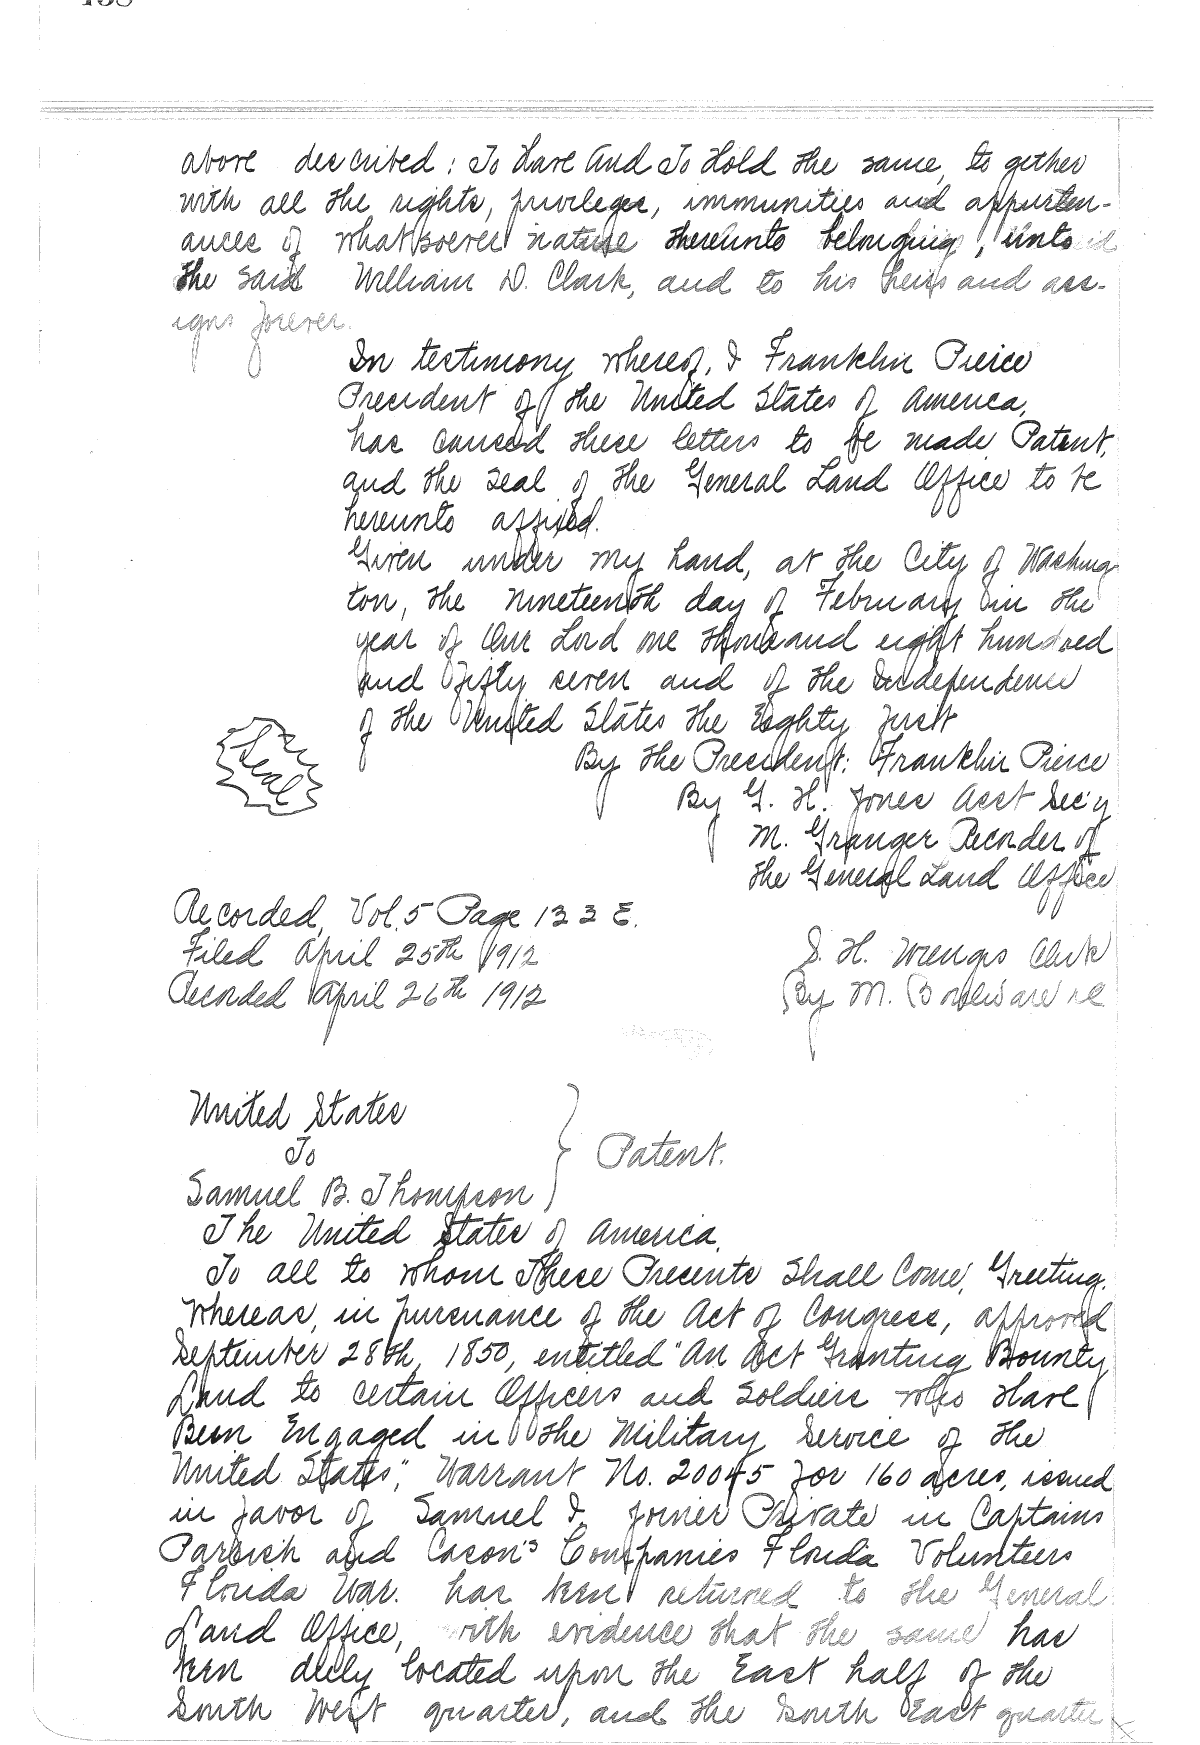 above described: To Have And To Hold the same, to gether
with all the rights, privileges, immunities and appurten-
ances of whatsoever nature thereunto belonging, unto
the said William D. Clark, and to his heirs and ass-
igns forever.
In testimony whereof, I Franklin Pierce
President of the United States of America,
has caused these letters to be made Patent,
and the seal of the General Land Office to be
hereunto affixed.
Given under my hand, at the City of Washing
ton, the nineteenth day of February in the
year of Our Lord one thousand eight hundred
and fifty seven and of the Independence
of the United States the Eighty first
Seal
By the President: Franklin Pierce
By G. H. Jones Asst Sec'y
M. Granger Recorder of
the General Land Office
Recorded, Vol. 5 Page 133 E.
Filed April 25th 1912
Recorded April 26th 1912
S. H. Clerk
By M.
United States
To
Samuel B. Thompson
Patent.
The United States of America.
To all to whom These Presents Shall Come, Greeting.
Whereas, in pursuance of the Act of Congress, approved
September 28th, 1850, entitled "An Act Granting Bounty
Land to certain Officers and Soldiers who Have
Been Engaged in the Military Service of the
United States", Warrant No. 20045 for 160 acres, issued
in favor of Samuel I. Joiner Private in Captains
Parrish and Cason's Companies Florida Volunteers
Florida War. has been returned to the General
Land Office, with evidence that the same has
been duly located upon the East half of the
South West quarter, and the South East quarter